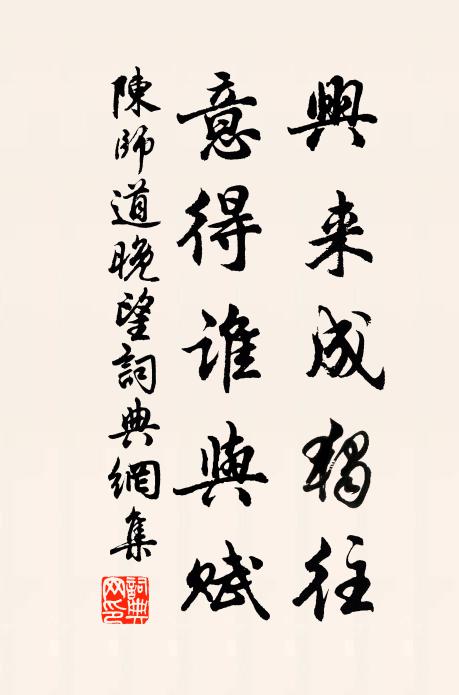 興来成獨往
意得誰與賦
陳師道晚望詞典網集
詞典網印